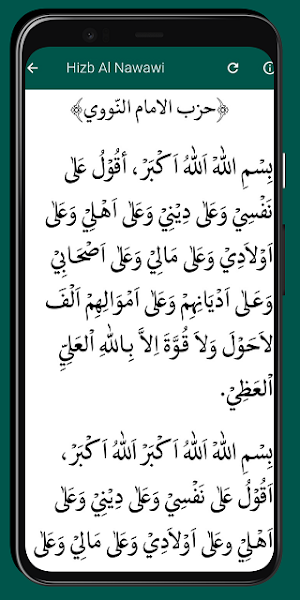 Hizb Al Nawawi
﴿حزب الامام النّووي﴾
بِسْمِ اللّٰهْ اَللّٰهُ اَكْبَرْ، أَقُوْلُ عَلٰى
نَفْسِيْ وَعَلٰى دِيْنِيْ وَعَلٰى اَهْلِيْ وَعَلٰى
اَوْلَادِيْ وَعَلٰى مَالِيْ وَعَلٰى اَصْحَابِيْ
وَعَلٰى اَدْيَانِهِمْ وَعَلٰى اَمْوَالِهِمْ اَلْفَ
لَاحَوْلَ وَلَا قُوَّةَ اِلاَّ بِاللّٰهِ الْعَلِيِّ
الْعَظِيْمِ.
بِسْمِ اللّٰهْ اَللّٰهُ اَكْبَرْ اَللّٰهُ اَكْبَرْ،
اَقُوْلُ عَلٰى نَفْسِيْ وَعَلٰى دِيْنِيْ وَعَلٰى
اَهْلِيْ وَعَلٰى اَوْلَادِيْ وَعَلٰى مَالِيْ وَعَلٰى